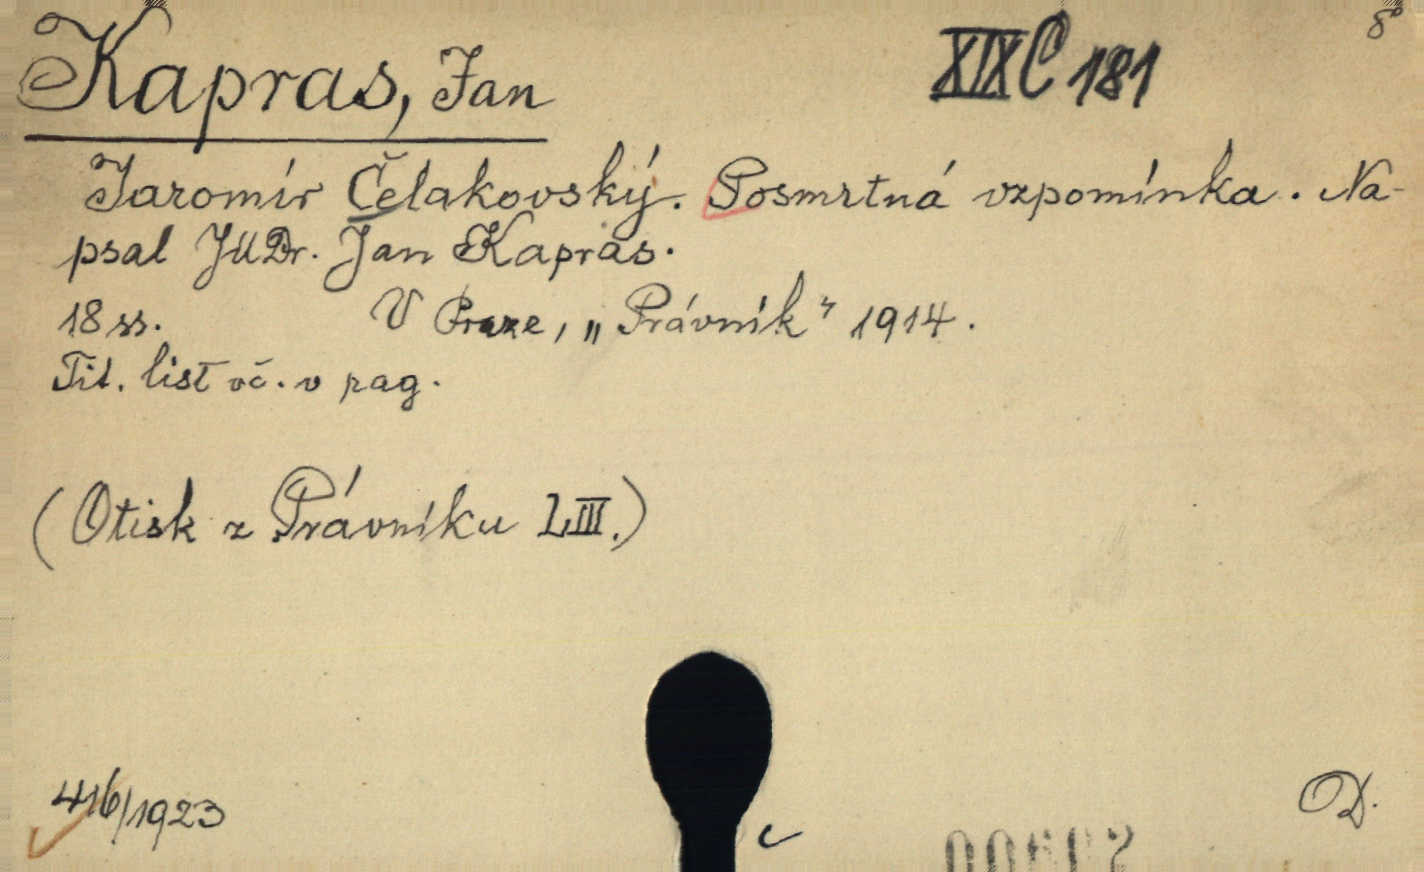 8°
Kapras, Jan
XIX C 181
Jaromír Čelakovský. Posmrtná vzpomínka. Na-
psal JUDr. Jan Kapras.
18 ss. V Praze, „Právník" 1914.
Tit. list vč. v pag.
(Otisk z Právníku LIII.)
416/1923
D.